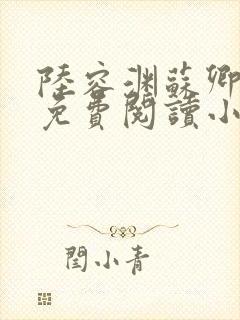 陸容渊蘇卿
免費閱讀小
閆小青